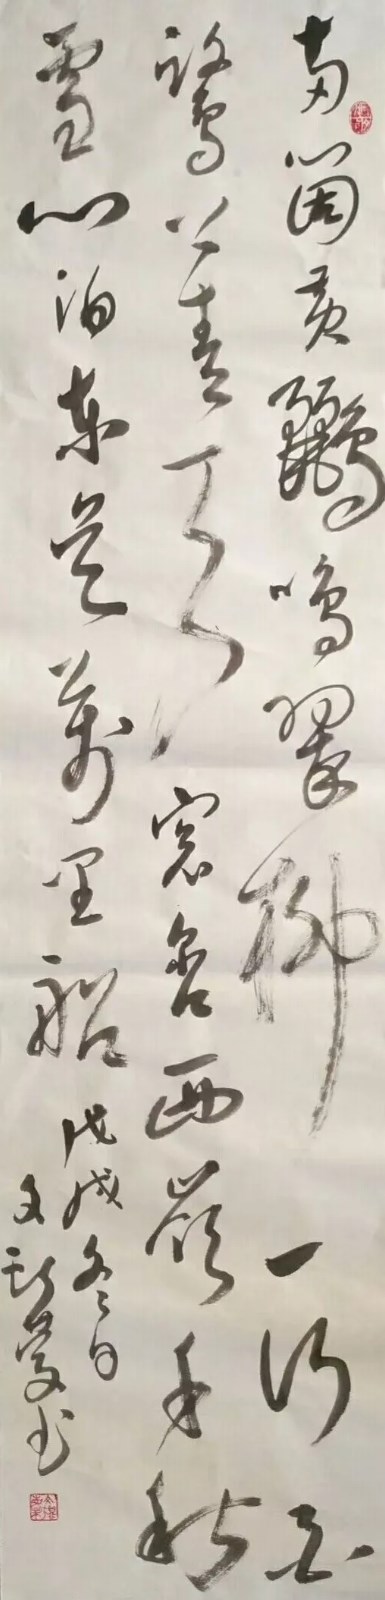 两箇黄鹂鸣翠柳一行白
鹭上青天窗含西岭千秋
雪门泊东吴万里船
戊戌冬日
书